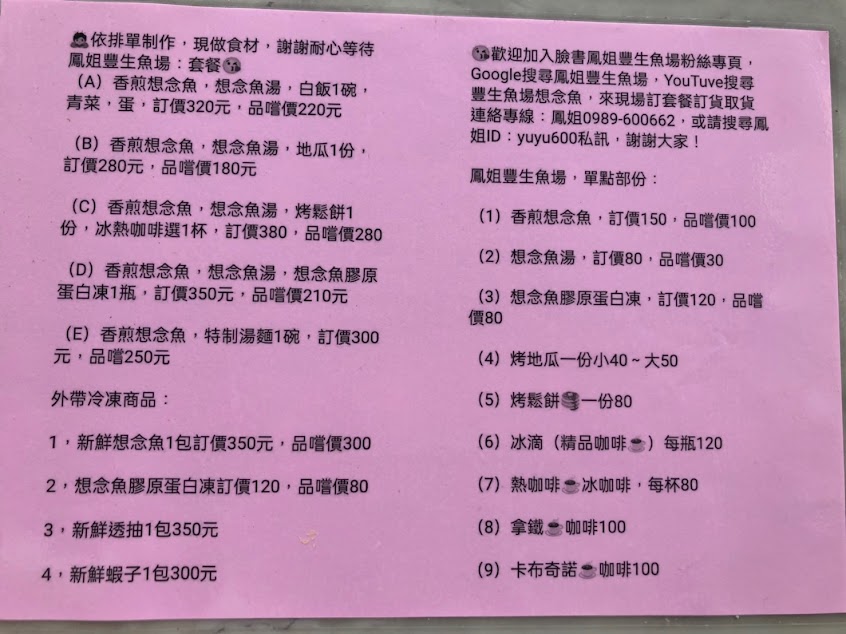 🙇依排單制作，現做食材，謝謝耐心等待
鳳姐豐生魚場：套餐😘
（A）香煎想念魚，想念魚湯，白飯1碗，
青菜，蛋，訂價320元，品嚐價220元
（B）香煎想念魚，想念魚湯，地瓜1份，
訂價280元，品嚐價180元
（C）香煎想念魚，想念魚湯，烤鬆餅1
份，冰熱咖啡選1杯，訂價380，品嚐價280
（D）香煎想念魚，想念魚湯，想念魚膠原
蛋白凍1瓶，訂價350元，品嚐價210元
（E）香煎想念魚，特制湯麵1碗，訂價300
元，品嚐250元
外帶冷凍商品：
1，新鮮想念魚1包訂價350元，品嚐價300
2，想念魚膠原蛋白凍訂價120，品嚐價80
3，新鮮透抽1包350元
4，新鮮蝦子1包300元
😘歡迎加入臉書鳳姐豐生魚場粉絲專頁，
Google搜尋鳳姐豐生魚場，YouTuve搜尋
豐生魚場想念魚，來現場訂套餐訂貨取貨
連絡專線：鳳姐0989-600662，或請搜尋鳳
姐ID：yuyu600私訊，謝謝大家！
鳳姐豐生魚場，單點部份：
（1）香煎想念魚，訂價150，品嚐價100
（2）想念魚湯，訂價80，品嚐價30
（3）想念魚膠原蛋白凍，訂價120，品嚐
價80
（4）烤地瓜一份小40～大50
（5）烤鬆餅🥞一份80
（6）冰滴（精品咖啡☕）每瓶120
（7）熱咖啡☕冰咖啡，每杯80
（8）拿鐵☕咖啡100
（9）卡布奇諾☕咖啡100